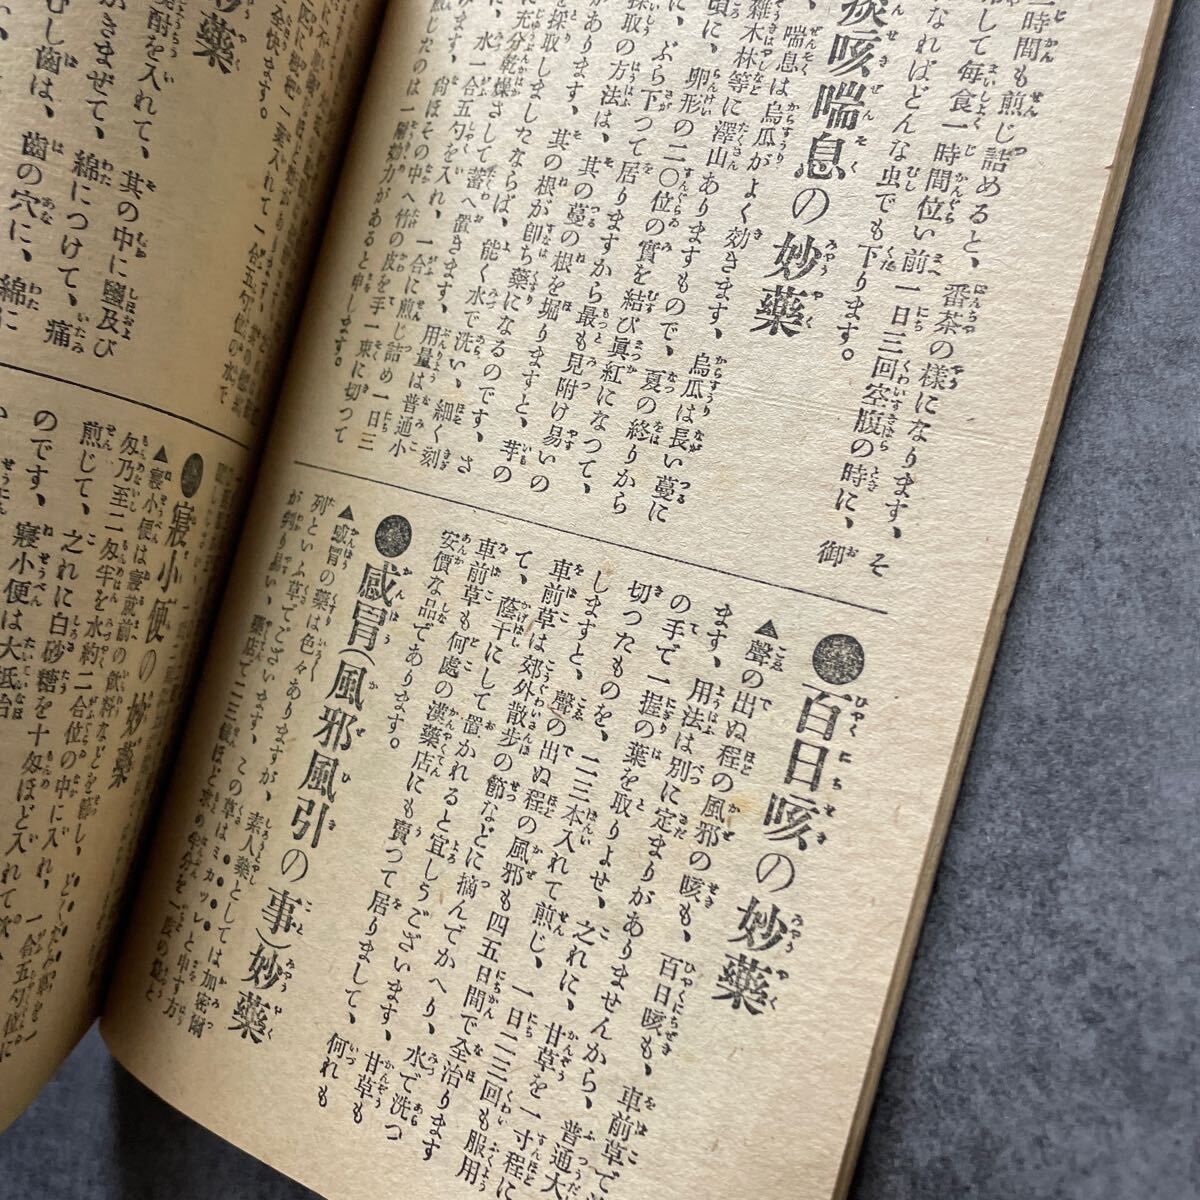 一時間も煎じ詰めると、番茶の樣になります、そ
して每食一時間位い前一日三回空腹の時に、御
なればどんな虫でも下ります。
痰咳喘息の妙藥
喘息は烏瓜がよく効きます、烏瓜は長い蔓に
雜木林等に澤山ありますもので、夏の終りから
頃に、卵形の二〇位の實を結び眞紅になつて、
ぶら下つて居りますから最も見附け易いの
採取の方法は、其の蔓の根を堀りますと、芋の
があります、其の根が卽ち藥になるのです、さ
を採取しましたならば、能く水で洗い、細く刻
に充分乾燥さして蓄へ置きます、用量は普通小
に、水一合五勺を入れ、一合に煎じ詰め一日三
ます、尙ほその中へ竹の皮を手一束に切つて
したのは一層効力があると申します。
百日咳の妙藥
▲聲の出ぬ程の風邪の咳も、百日咳も、車前草で
ます、用法は別に定まりがありませんから、普通大
の手で一握の葉を取りよせ、之れに、甘草を一寸程に
切つたものを、二三本入れて煎じ、一日二三回も服用
しますと、聲の出ぬ程の風邪も四五日間で全治ります
車前草は郊外散步の節などに摘んでかへり、水で洗つ
て、蔭干にして置かれると宜しうございます、甘草も
車前草も何處の漢藥店にも賣つて居りまして、何れも
安價な品であります。
感冒(風邪風引の事)妙藥
▲感冒の藥は色々ありますが、素人藥としては加密爾
列といふ草でございます、この草はミカツレと申す方
が判り易い、藥店で二三錢ほど求め
妙藥
全快ます。
燒酎を入れて、其の中に鹽及び
かきまぜて、綿につけて、痛
むし齒は、齒の穴に、綿に
寢小便の妙藥
▲寢小便は寢就前の飮料などを節し、
匁乃至二匁半を水約二合位の中に入れ、一合五勺位に
煎じて、之れに白砂糖を十匁ほど入れて
のです、寢小便は大抵治